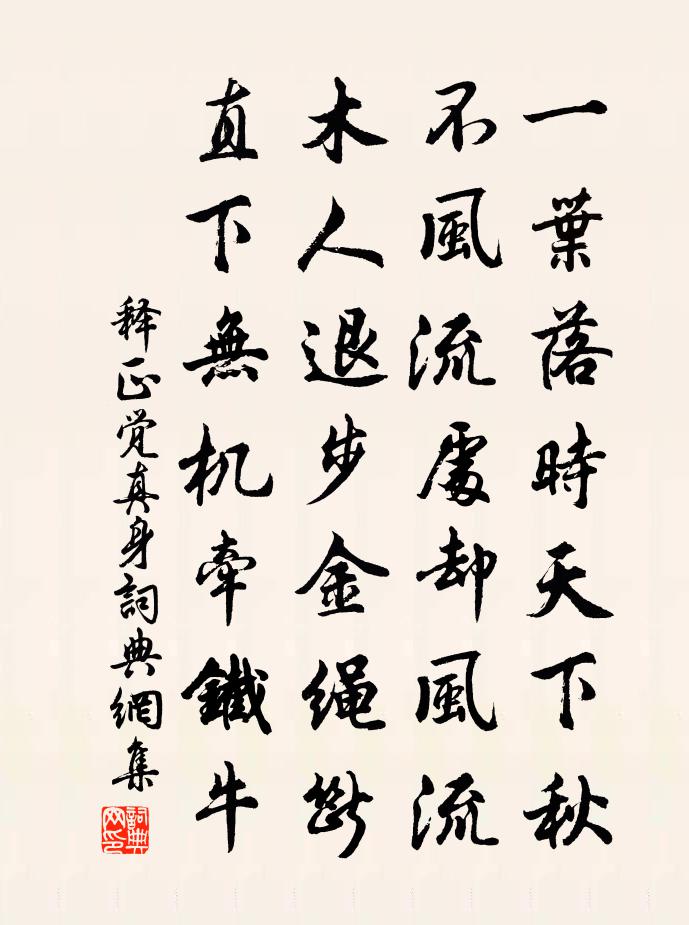 一葉落時天下秋
不風流處却風流
木人退步金绳斷
直下無机牽鐵牛
释正觉真身詞典網集
詞典
网印